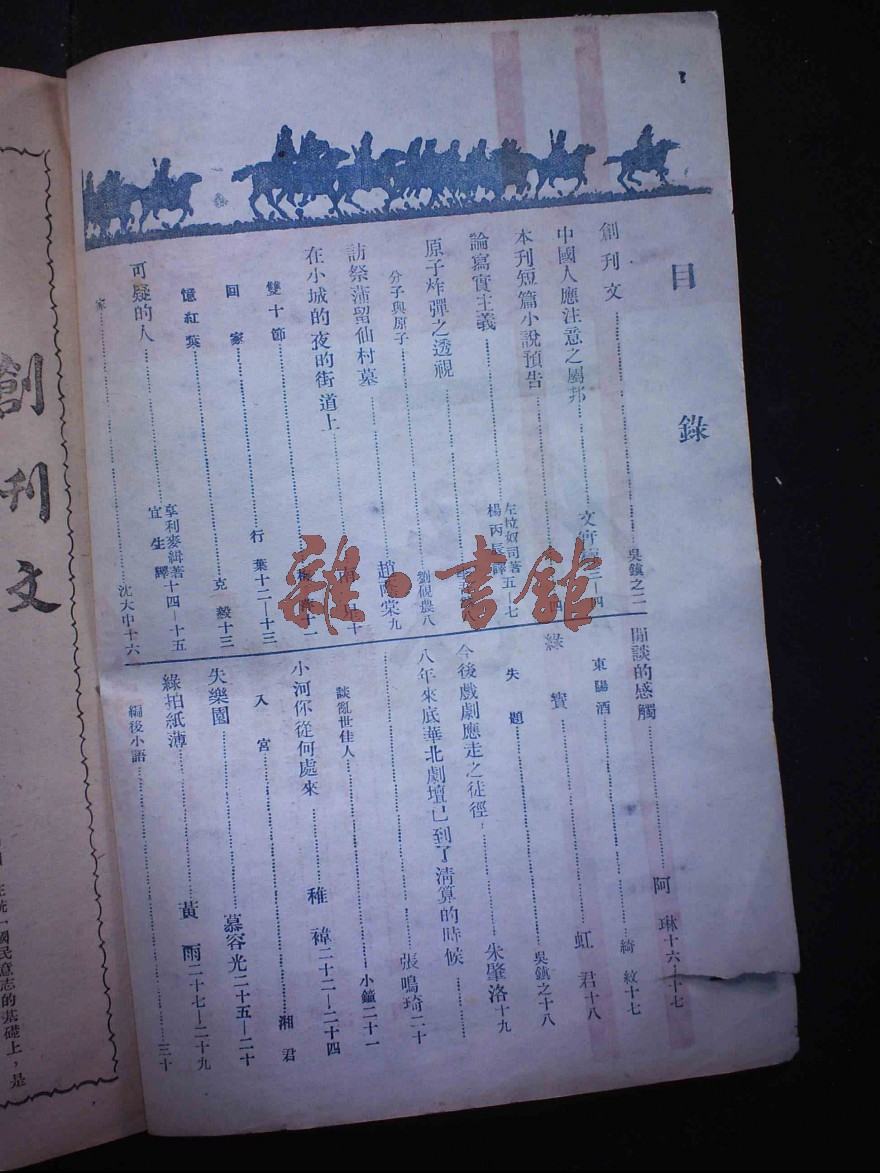 目錄
創刊文 吳鎮之 一
中國人應注意之屬邦 文 二—四
本刊短篇小說預告 四
論寫實主義 左拉奴司著 楊丙辰譯 五—七
原子炸彈之透視 八
分子與原子 劉硯農 八
訪祭蒲留仙村墓 趙蔭棠 九
在小城的夜的街道上 十
雙十節 十一
回家 行葉 十二—十三
憶紅葉 克毅 十三
可疑的人 亨利麥緝著 宜生譯 十四—十五
家 沈大中 十六
閒談的感觸 阿琳 十六—十七
東陽酒 綺紋 十七
綠寶 虹君 十八
失題 吳鎮之 十八
今後戲劇應走之徒徑 朱肇洛 十九
八年來底華北劇壇已到了清算的時候
張鳴琦 二十
談亂世佳人 小鐘 二十一
小河你從何處來 稚褘 二十二—二十四
入宮 湘君
失樂園 慕容光 二十五—二十
綠拍紙薄 黃雨 二十七—二十九
編後小語 三十
雜·書館
創刊文
統一國民意志的基礎上，是